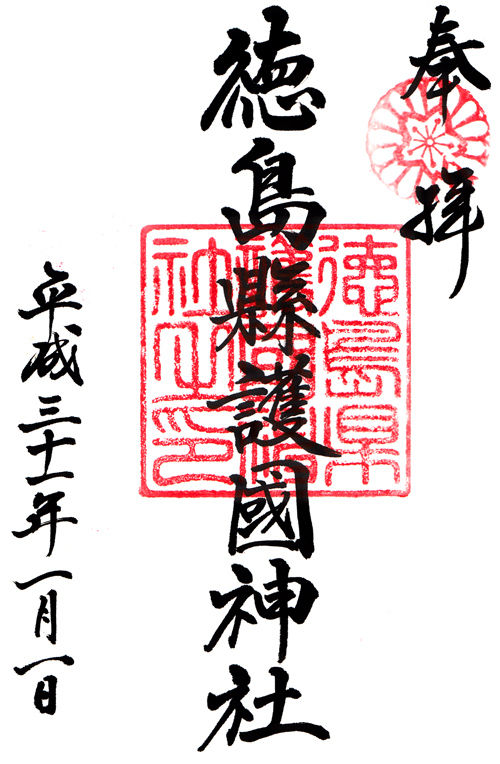 奉拝
徳島縣護國神社
徳島県
護國神
社之印
平成三十一年一月一日